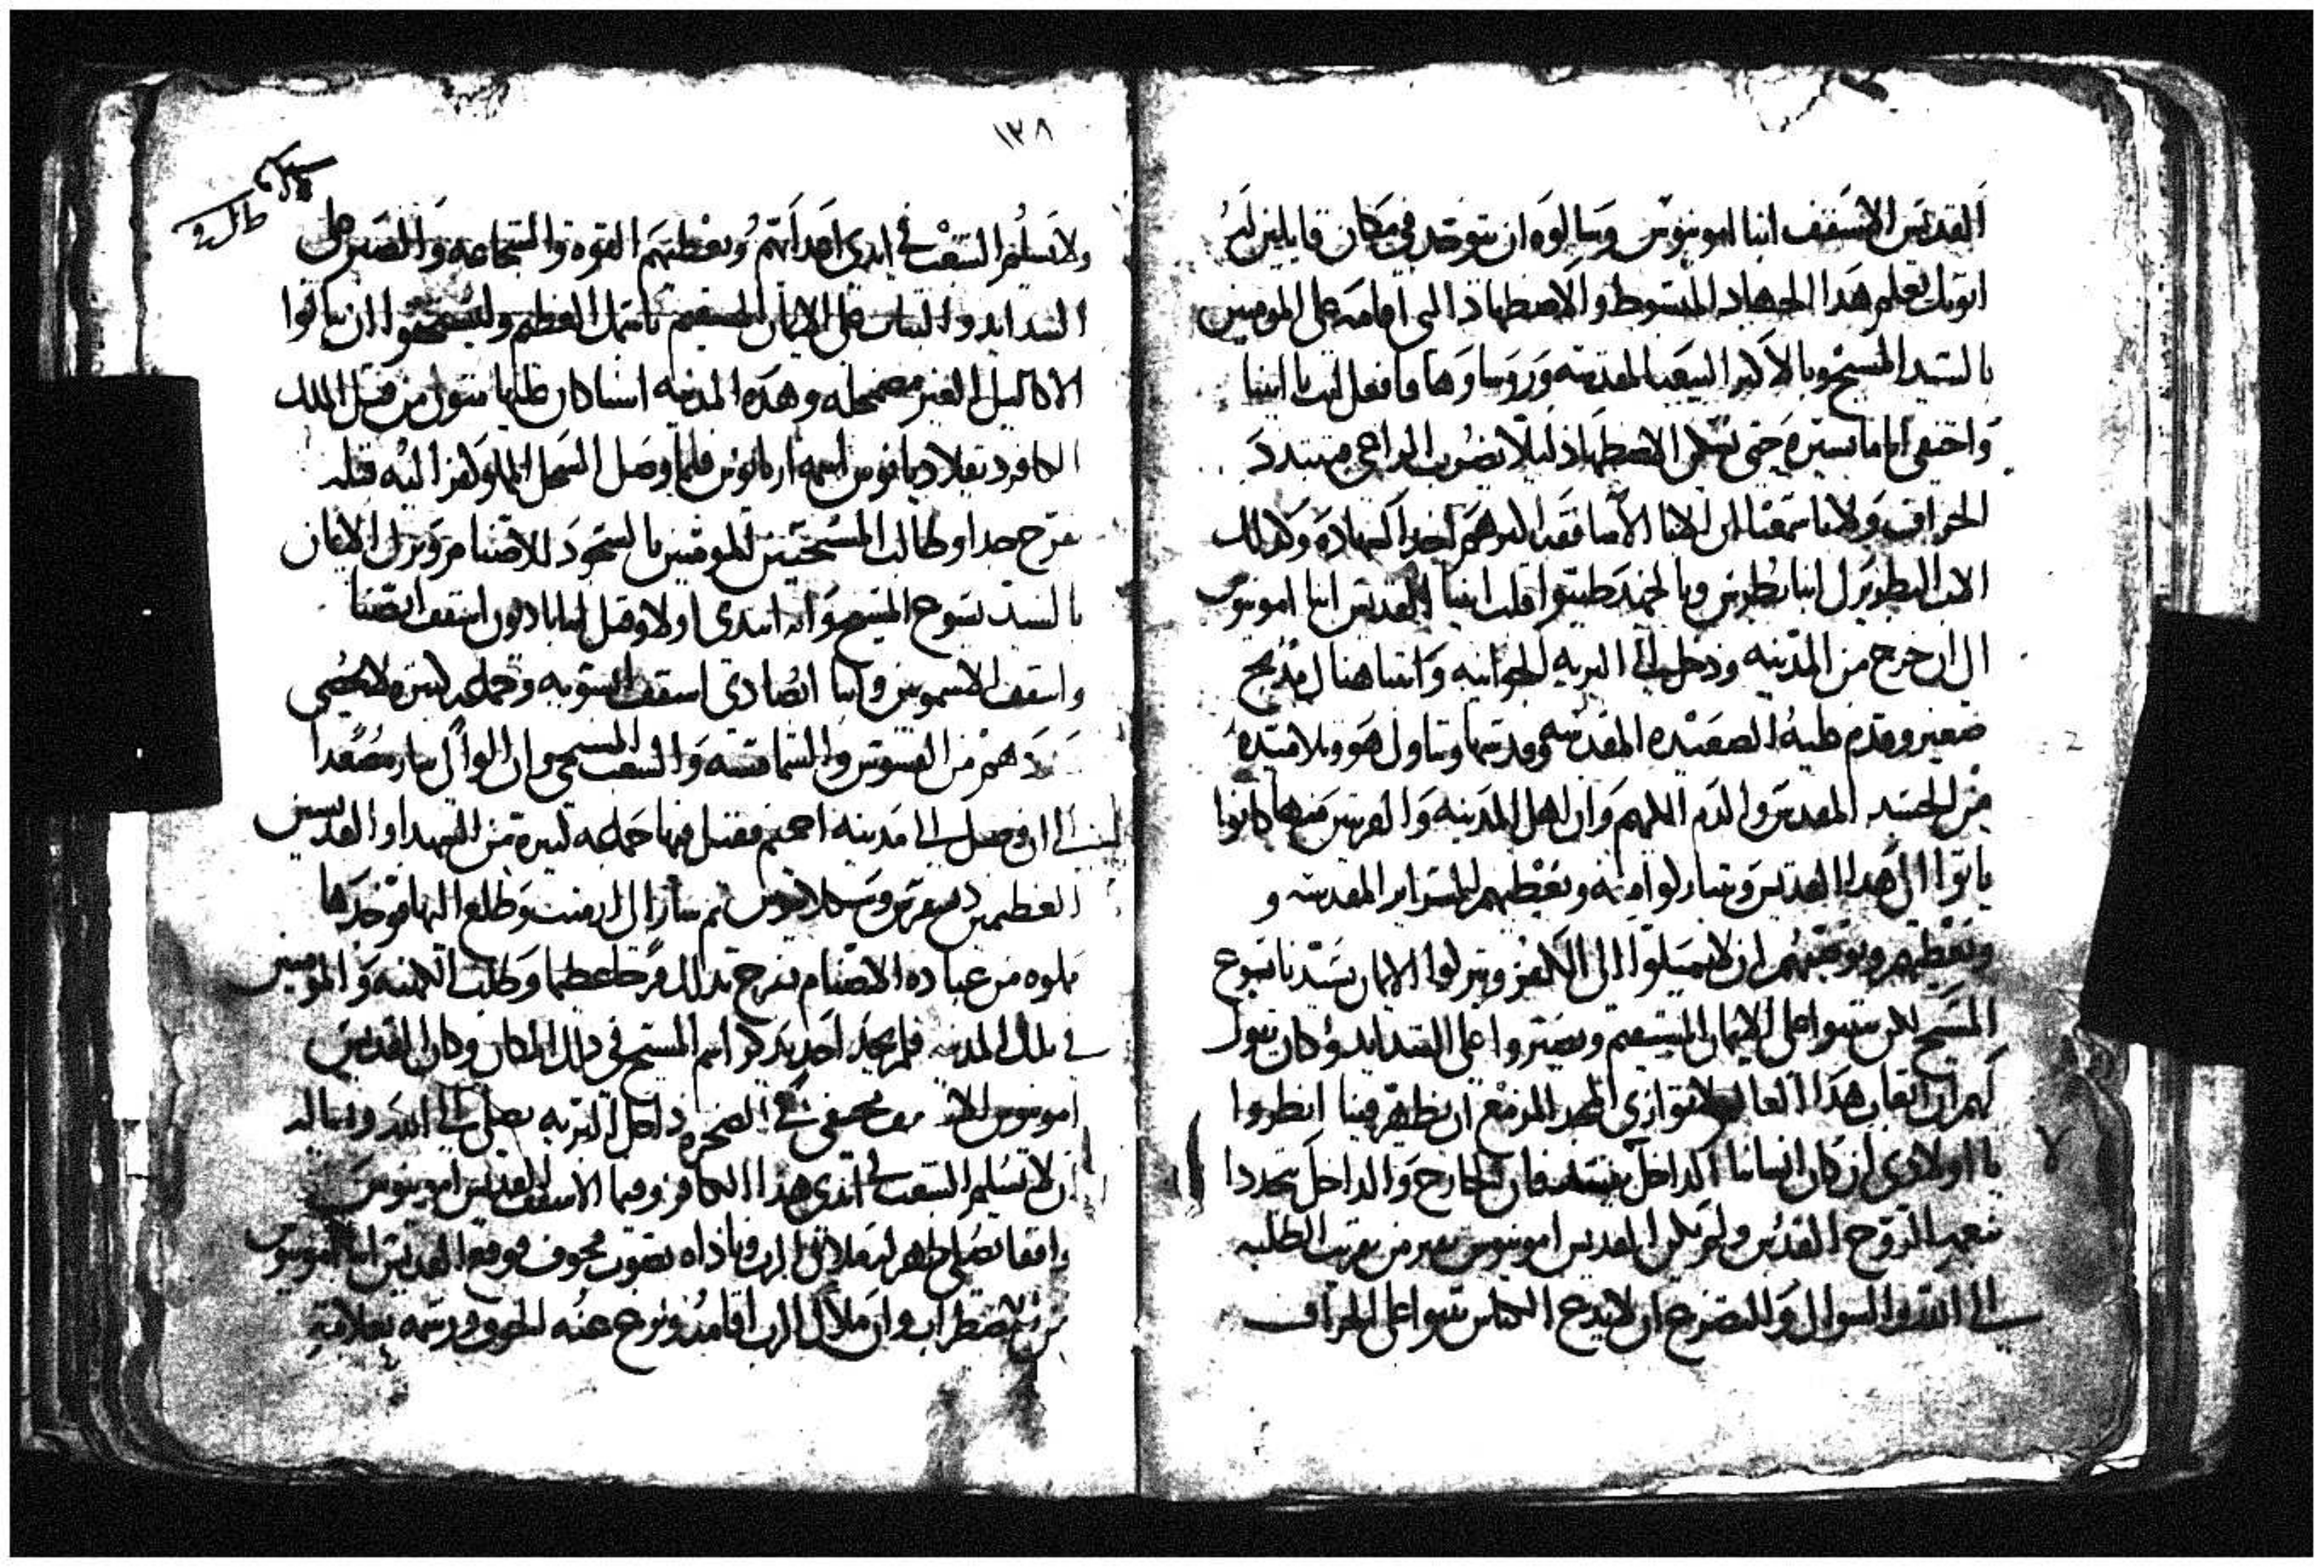 القديس الاسقف انبا امونيوس وسالوه ان يتوحد في مكان قايلين له
ابوتك تعلم هدا الجهاد المبسوط والاضطهاد الدي اقامه على المومنين
بالسيد المسيح وبالاكتر البيعه المقدسه وروساوها فافعل ايها ابينا
واختفي اياما يسيره حتى تسكن الاضطهاد ليلا يضرب الراعي فتتبدد
الخراف ولاننا سمعنا ان الابا الاساقفه اكترهم اخدوا الشهاده وكدلك
الاب البطريرك انبا بطرس وبالجهد طيبوا قلب ابينا القديس انبا امونيوس
الى ان خرج من المدينه ودخل الى البريه الجوانيه وابتنا هناك مدبح
صغير وقدم عليه الصعيده المقدسه وقدسها وتناول هو وتلاميده
من الجسد المقدس والدم الكريم وان اهل المدينه والقريبين منها كانوا
ياتوا الى هدا القديس ويتباركوا منه ويعطيهم السراير المقدسه و
ويعظهم ويوصيهم ان لا يميلوا الى الكفر ويتركوا الايمان بسيدنا يسوع
المسيح لكن يتبتوا على الايمان المستقيم ويصبروا على الشدايد وكان يقول
لهم ان اتعاب هدا العالم لا توازي المجد المزمع ان يظهر فينا انظروا
يا اولادي ان كان انساننا الداخل يفسد فان الخارج والداخل يتجددا
بنعمه الروح القدس ولم يكن القديس امونيوس يفتر من تقريب الطلبه
الى الله والسوال والتضرع ان لا يدع الكناس يتبوا على الخراف
١٣٨
ولا يسلم الشعب في ايدي اعداتهم ويعطيهم القوه والشجاعه والصبر على
الشدايد والتبات على الايمان المستقيم بايتمك العظيم وليستحقوا ان ينالوا
الاكاليل الغير مضمحله وهده المدينه اسنا كان عليها متولي من قبل الملك
الكافر دقلاديانوس اسمه اريانوس فلما وصل السجل المملوء كفرا اليه قبله
بفرح جدا وطالب المسيحيين المومنين بالسجود للاصنام وترك الايمان
بالسيد يسوع المسيح وانه ابتدي اولا وقتل انبا باديون اسقف انصنا
واسقف الاشمونين وانبا ابصادي اسقف ابتويه وجماعه كتيره لا تحصى
كلاهم من القسوس والشمامسه والشعب المسيحي وان الوالي سار مصعدا
الى ان وصل الى مدينه اخميم فقتل فيها جماعه كتيره من الشهدا والقديسين
العظيمين ديسقرس وسكلابيوس تم سار الى اسنا وطلع اليها فوجدها
مملوه من عباده الاصنام بفرح بدلك فرحا عظيما وطلب الكهنه والمومنين
في تلك المدينه فلم يجد احد يدكر اسم المسيح في دلك المكان وكان القديس
امونيوس الاسقف مختفي في الصخره داخل البريه يصلي الى الله وانه اله
ان لا تسلم الشعب في ايدي هذا الكافر وفيما الاسقف القديس امونيوس
واقفا يصلي ظهر له ملاك الرب وناداه بصوت مخوف فوقع القديس انبا امونيوس
من الاضطراب وان ملاك الرب اقامه ونزع عنه الخوف ورشمه بعلامه